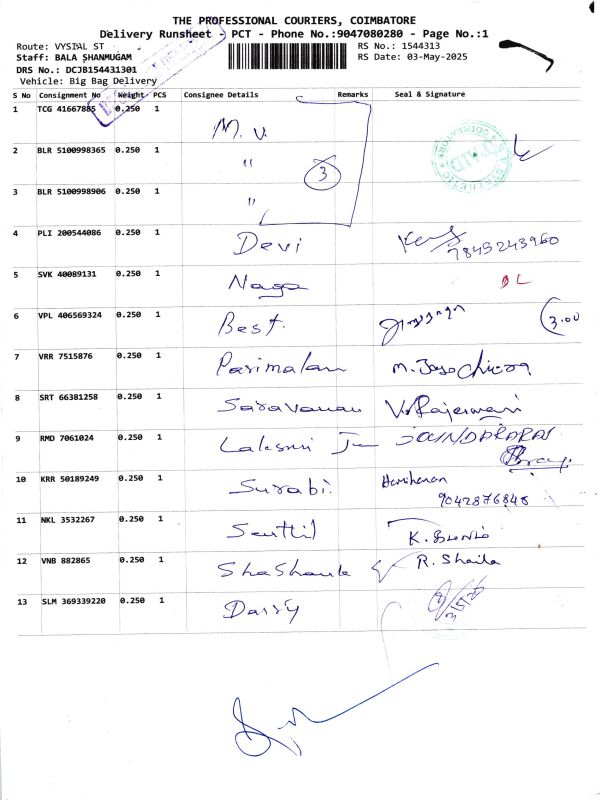 THE PROFESSIONAL COURIERS, COIMBATORE
Delivery Runsheet - PCT - Phone No.:9047080280 - Page No.:1
Route: VYSIAL ST
RS No.: 1544313
Staff: BALA SHANMUGAM
RS Date: 03-May-2025
DRS No.: DCJB154431301
Vehicle: Big Bag Delivery
S No Consignment No Weight PCS Consignee Details Remarks Seal & Signature
1 TCG 41667885 0.250 1 M. V.
2 BLR 5100998365 0.250 1 " 3
3 BLR 5100998906 0.250 1 "
4 PLI 200544086 0.250 1 Devi 7845243960
5 SVK 40089131 0.250 1 Naga DL
6 VPL 406569324 0.250 1 Best. 3.00
7 VRR 7515876 0.250 1 Parimalam M.
8 SRT 66381258 0.250 1 Saravanan V. Rajeswari
9 RMD 7061024 0.250 1 Lakshmi
10 KRR 50189249 0.250 1 Surabi. Hariharan
9042876848
11 NKL 3532267 0.250 1 Senthil K.
12 VNB 882865 0.250 1 Shashank R. Shaila
13 SLM 369339220 0.250 1 Darry 3/5/25